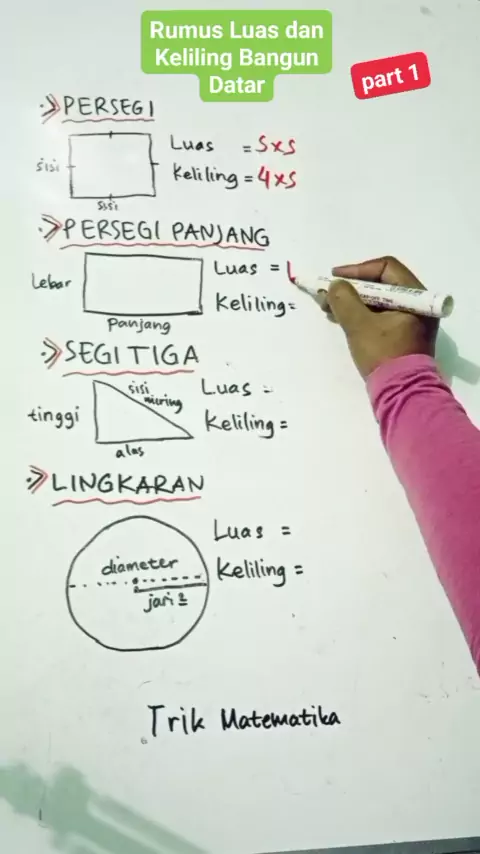 Rumus Luas dan
Keliling Bangun
Datar
part 1
PERSEGI
sisi
sisi
Luas = S×S
Keliling = 4×S
PERSEGI PANJANG
Lebar
Panjang
Luas =
Keliling =
SEGITIGA
tinggi
sisi
miring
alas
Luas =
Keliling =
LINGKARAN
diameter
jari2
Luas =
Keliling =
Trik Matematika